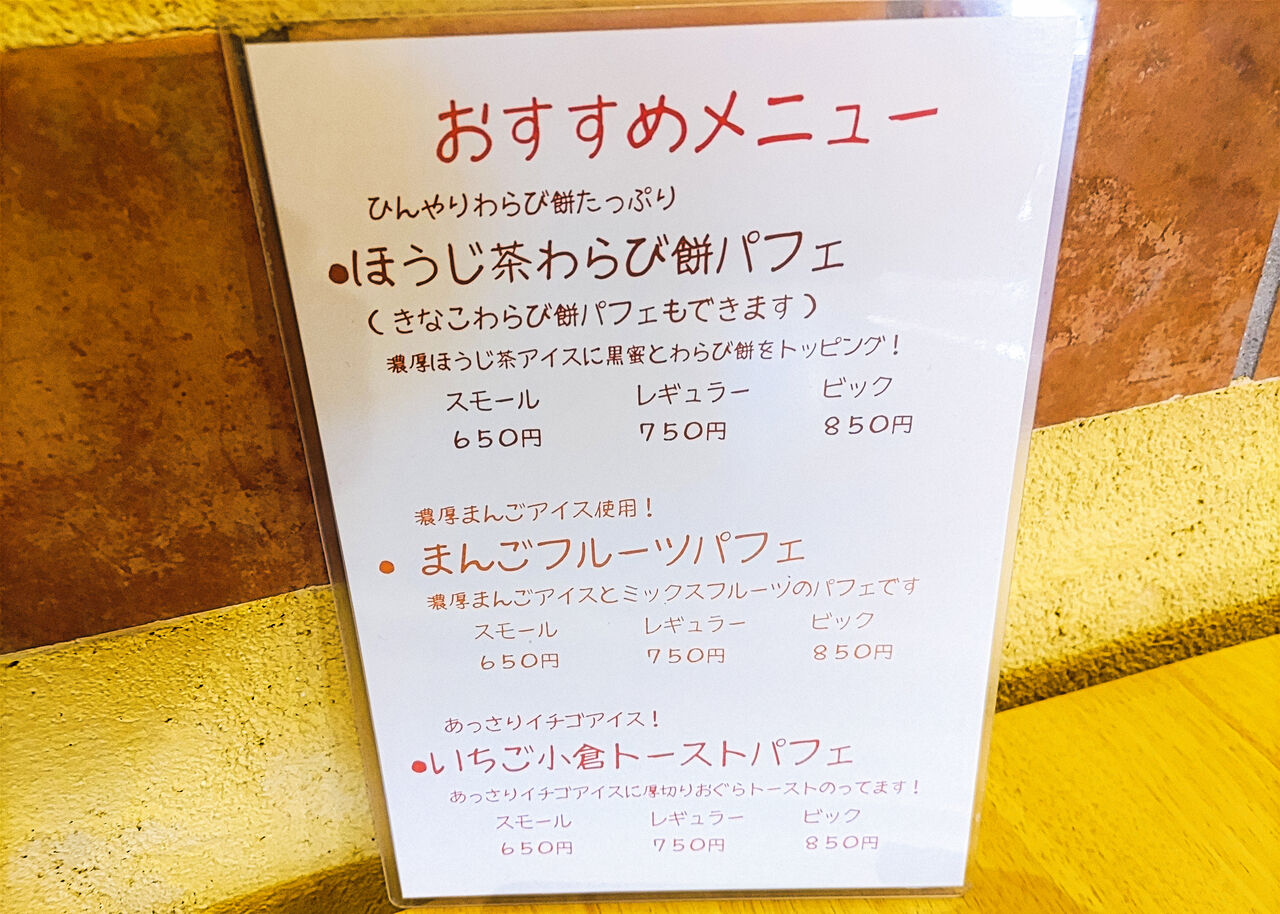 おすすめメニュー
ひんやりわらび餅たっぷり
●ほうじ茶わらび餅パフェ
(きなこわらび餅パフェもできます)
濃厚ほうじ茶アイスに黒蜜とわらび餅をトッピング！
スモール レギュラー ビック
650円 750円 850円
濃厚まんごアイス使用！
● まんごフルーツパフェ
濃厚まんごアイスとミックスフルーツのパフェです
スモール レギュラー ビック
650円 750円 850円
あっさりイチゴアイス！
●いちご小倉トーストパフェ
あっさりイチゴアイスに厚切りおぐらトーストのってます！
スモール レギュラー ビック
650円 750円 850円